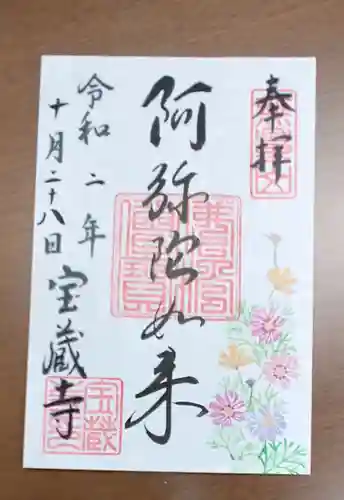 奉拝
阿弥陀如来
令和二年
十月二十八日
宝蔵寺
宝蔵